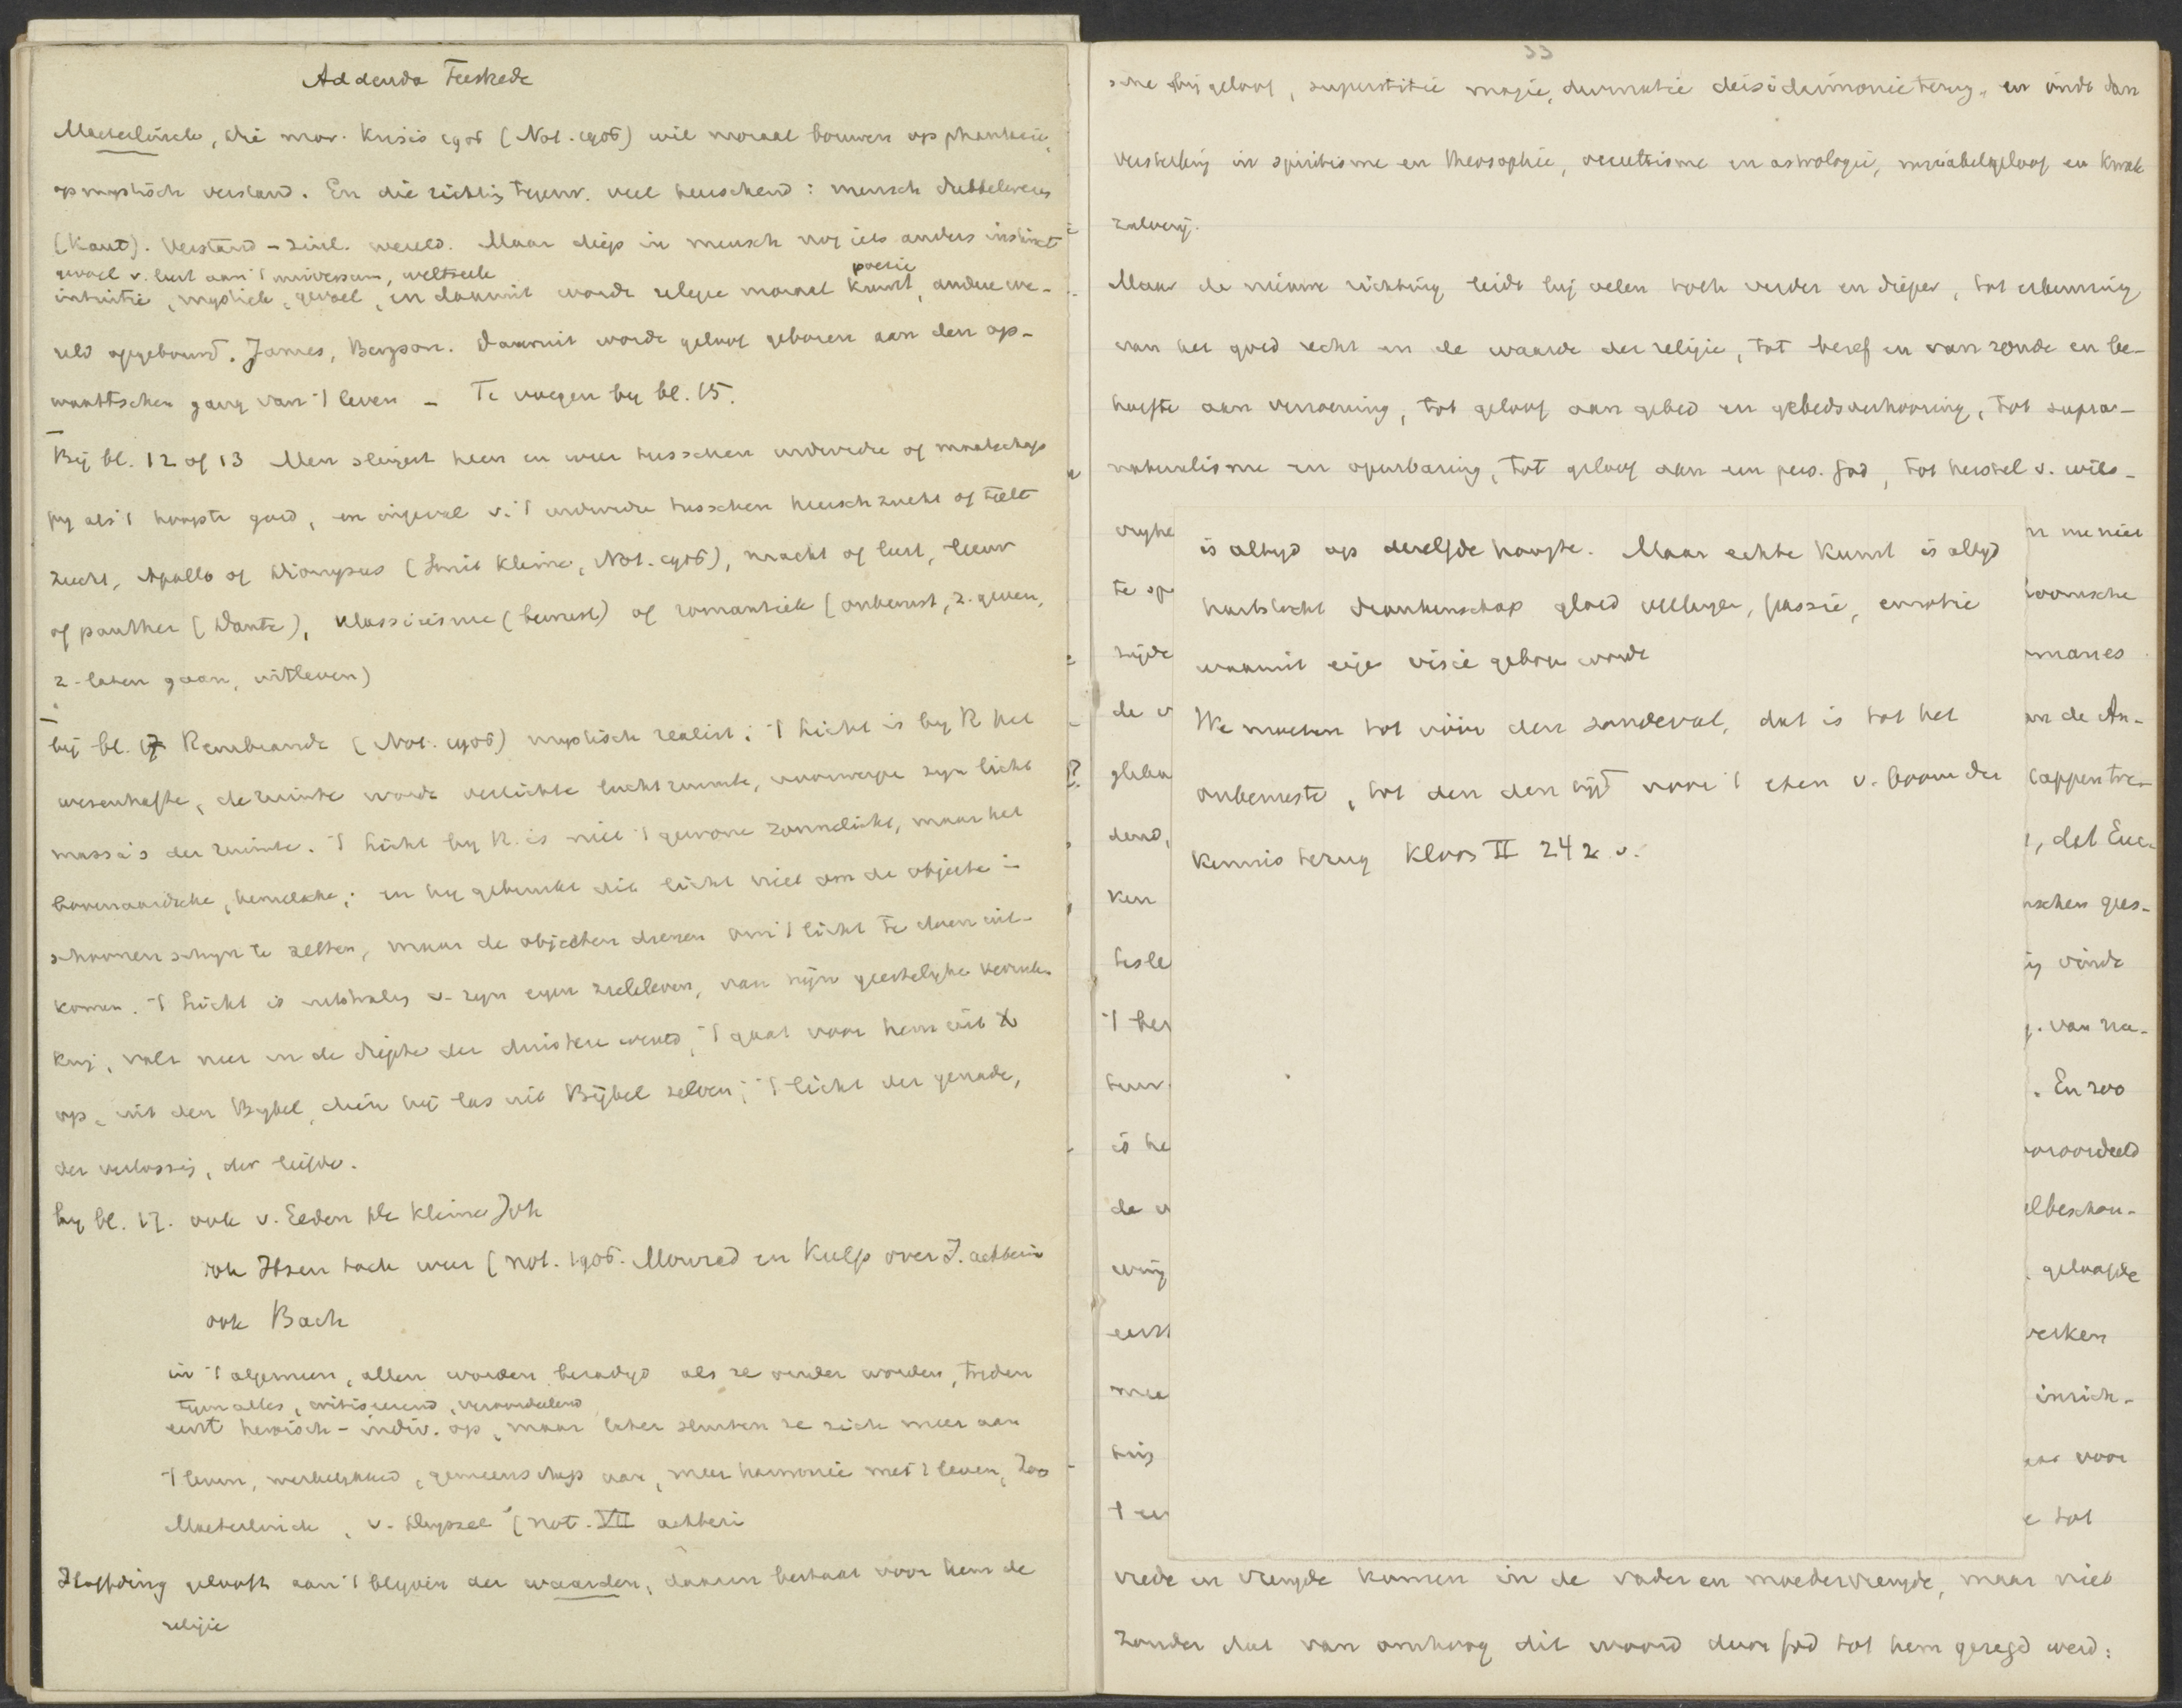 Addenda
Maeterlinck, die mor. Krisis 1906 (Not. 1906) wil moraal bouwen op phantasie,
op mystisch verstand. En die richting tegenw. veel heerschend: mensch dubbelwezen
(Kant). Verstand - zinl. wereld. Maar diep in mensch nog iets anders instinct
gevoel v. lust aan 't universum, weltseele
poezie
intuitie, mystiek, gevoel, en daaruit worde religie moraal kunst, andere we-
reld opgebouwd. James, Bergson. Daaruit worde geloof geboren aan den op-
waartschen gang van 't leven - Te voegen by bl. 15.
By bl. 12 of 13 Men slingert heen en weer tusschen individu of maatschap
pij als 't hoogste goed, en ingeval v. 't individu tusschen heerschzucht of
zucht, Apollo of Dionysus (Smit Kleine, Not. 1906), macht of lust, leeuw
of panther (Dante), klassicisme (bewust) of romantiek (onbewust, z. geven,
z. laten gaan, uitleven)
bij bl. 17 Rembrandt (Not. 1906) mystisch realist; 't licht is by R het
wezenhafte, de ruimte worde verlichte lucht ruimte, voorwerpe zyn licht
massa's der ruimte. 't licht by R. is niet 't gewone zonnelicht, maar het
bovenaardsche, hemelsche; en hy gebruikt dit licht niet om de objecte in
schoonen schyn te zetten, maar de objecten dienen om 't licht te doen uit-
komen. 't licht is uitstraling v. zyn eigen zieleleven, van zijn geestelyke
, valt neer in de diepte der duistere wereld, 't gaat voor hem uit
op, uit den Bybel, dien hij las uit Bijbel zelven; 't licht der genade,
der verlossing, der liefde.
by bl. 17. ook v. Eeden De kleine Joh
ook Ibsen toch weer (not. 1906. Mourad en Kulp over I. achterin
ook Bach
in 't algemeen, allen worden bezadigd als ze ouder worden, treden
tegen alles, critiseerend, veroordeelend
eerst heroisch - indiv. op, maar later sluiten ze zich meer aan
't leven, werkelykheid, gemeenschap aan, meer harmonie met 't leven, Zoo
Maeterlinck, v. Deyssel (not. VII achteri
Hoffding gelooft aan 't blyven der waarden, daarin bestaat voor hem de
religie
33
sche bij geloof, superstitie magie, deisidaimonie terug, en vindt dan
versterking in spiritisme en theosophie, occultisme en astrologie, mirakelgeloof en kwak
zalverij.
Maar de nieuwe richting leidt bij velen toch verder en dieper, tot erkenning
van het goed recht en de waarde der religie, tot besef en van zonde en be-
hoefte aan verzoening, tot geloof aan gebed en gebedsverhooring, tot supra-
naturalisme en openbaring, tot geloof aan een pers. God, tot herstel v. wils-
vryhe
n me niet
is altyd op dezelfde hoogte. Maar echte kunst is altyd
te op
hartstocht dronkenschap gloed, passie, emotie
zijde
waaruit eige visie gebore worde
de v
We moeten tot vóór den zondeval, dat is tot het
an de An-
onbewuste, tot den den tijd voor 't eten v. boom der
dend,
, dat Euc-
kennis terug Kloos II 242 v.
ken
nschen gees-
tesle
ig vinde
't her
g. van na-
tuur.
. En zoo
is he
vooroordeeld
de w
elbeschou-
wing
. geloofde
eerst
werken
mee
inrich-
ting
voor
't
e tot
vrede en vreugde komen in de vader en moedervreugde, maar niet
zonder dat van omhoog dit woord door God tot hem gezegd werd: